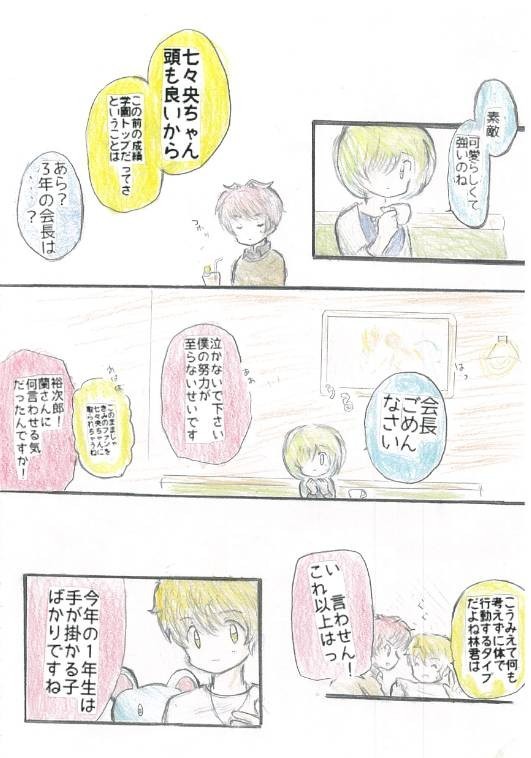 素敵
可愛らしくて
強いのね
七々央ちゃん
頭も良いから
この前の成績
学園トップだってさ
ということは
あら?
3年の会長は
…?
会長
ごめん
なさい
泣かないで下さい
僕の努力が
至らないせいです
このままじゃ
きみのファンを
七々央ちゃんに
取られちゃうね
裕次郎!
蘭さんに
何言わせる気
だったんですか!
こうみえて何も
考えずに体で
行動するタイプ
だよね林君は
い 言わせん!
これ以上はっ
今年の1年生は
手が掛かる子
ばかりですね